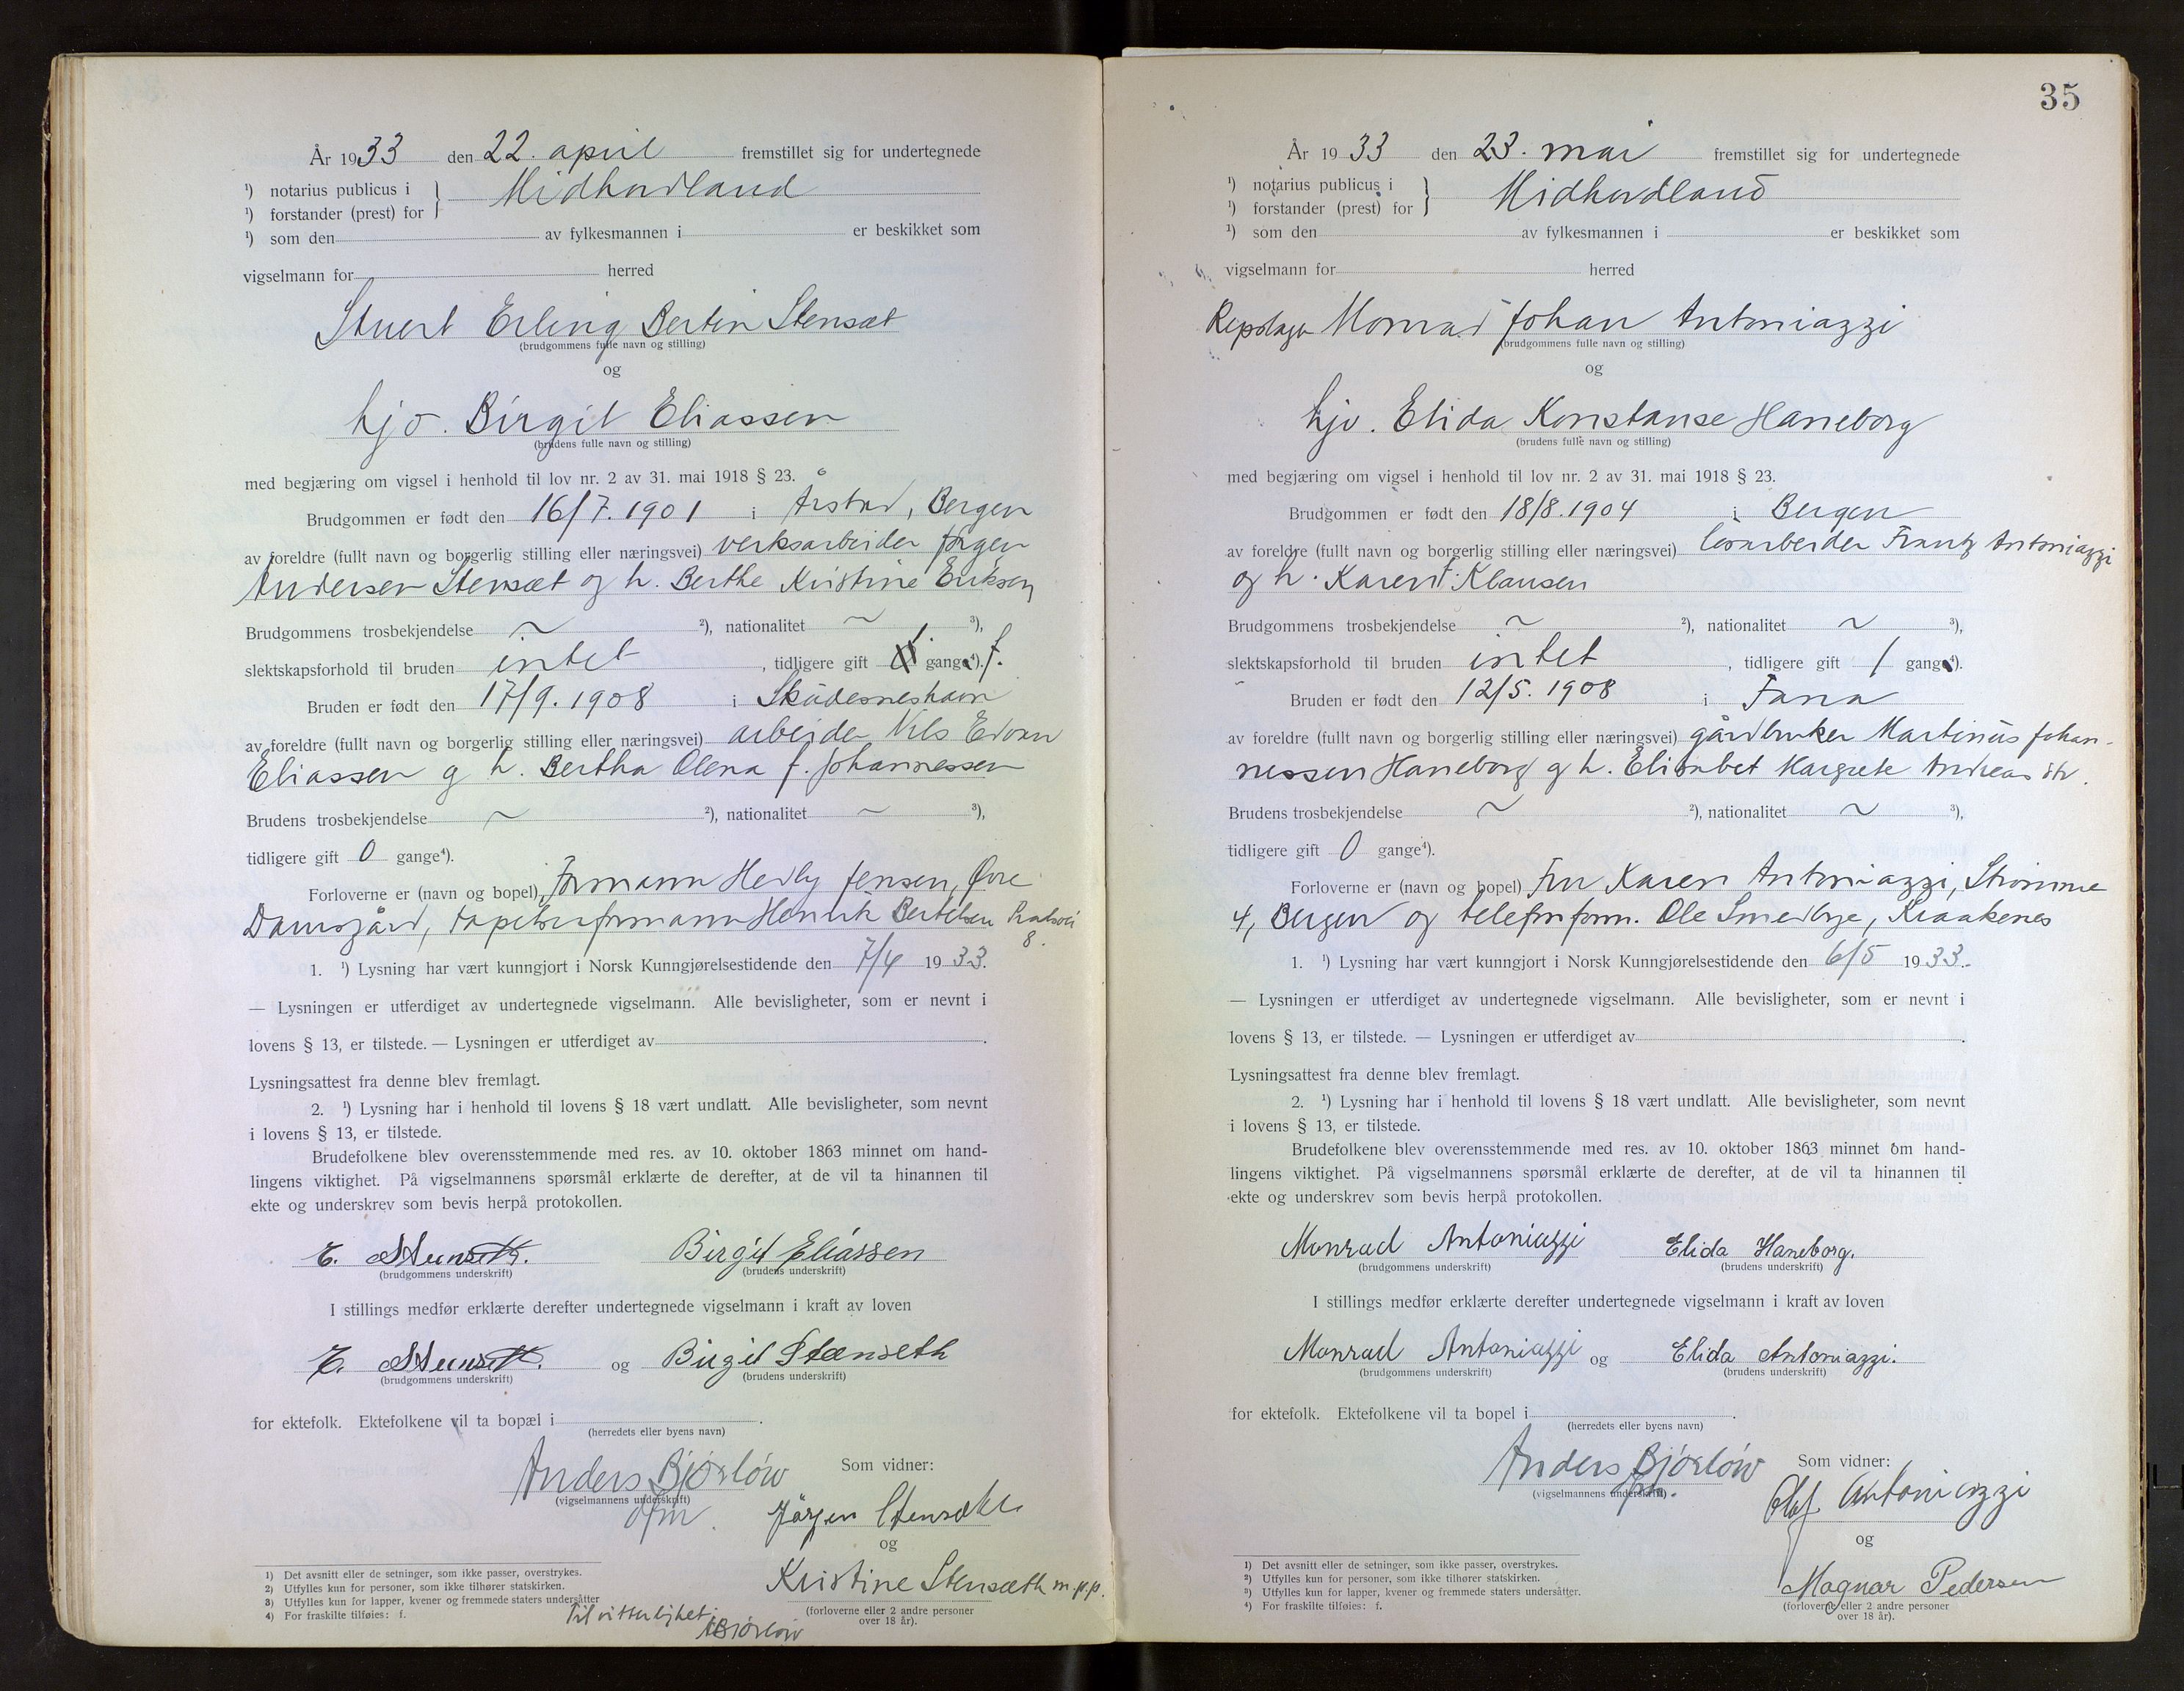 År 1933 den 22. april fremstillet sig for undertegnede
¹) notarius publicus i
¹) forstander (prest) for } Midhordland
¹) som den av fylkesmannen i er beskikket som
vigselmann for herred
Stuert Erling Bertin Stensæt
(brudgommens fulle navn og stilling)
og
hjv. Birgit Eliassen
(brudens fulle navn og stilling)
med begjæring om vigsel i henhold til lov nr. 2 av 31. mai 1918 § 23.
Brudgommen er født den 16/7.1901 i Årstad, Bergen
av foreldre (fullt navn og borgerlig stilling eller næringsvei) verksarbeider Jørgen
Andersen Stensæt og h. Berthe Kristine Eriksen
Brudgommens trosbekjendelse ~ ²), nationalitet ~ ³),
slektskapsforhold til bruden intet, tidligere gift 1. gang⁴). f.
Bruden er født den 17/9.1908 i Skudesneshavn
av foreldre (fullt navn og borgerlig stilling eller næringsvei) arbeider Nils Edvan
Eliassen og h. Bertha Olena f. Johannessen
Brudens trosbekjendelse ~ ²), nationalitet ~ ³),
tidligere gift 0 gange⁴).
Forloverne er (navn og bopel) Formann Hedly Jensen, Øvre
Damsgård, tapetserformann Henrik Bertelsen
8.
1. ¹) Lysning har vært kunngjort i Norsk Kunngjørelsestidende den 7/4 1933.
— Lysningen er utferdiget av undertegnede vigselmann. Alle bevisligheter, som er nevnt i
lovens § 13, er tilstede. — Lysningen er utferdiget av .
Lysningsattest fra denne blev fremlagt.
2. ¹) Lysning har i henhold til lovens § 18 vært undlatt. Alle bevisligheter, som nevnt
i lovens § 13, er tilstede.
Brudefolkene blev overensstemmende med res. av 10. oktober 1863 minnet om hand-
lingens viktighet. På vigselmannens spørsmål erklærte de derefter, at de vil ta hinannen til
ekte og underskrev som bevis herpå protokollen.
E. Stenseth. Birgit Eliassen
(brudgommens underskrift) (brudens underskrift)
I stillings medfør erklærte derefter undertegnede vigselmann i kraft av loven
E. Stenseth. og Birgit Stenseth
(brudgommens underskrift) (brudens underskrift)
for ektefolk. Ektefolkene vil ta bopæl i .
(herredets eller byens navn)
Anders Bjørlow Som vidner:
(vigselmannens underskrift)
Jörgen Stensæth
og
Kristine Stensæth m.p.p.
(forloverne eller 2 andre personer
over 18 år).
1) Det avsnitt eller de setninger, som ikke passer, overstrykes.
2) Utfylles kun for personer, som ikke tilhører statskirken.
3) Utfylles kun for lapper, kvener og fremmede staters undersåtter
4) For fraskilte tilføies: f.
Til vitterlighet:
ABjørlow
35
År 1933 den 23. mai fremstillet sig for undertegnede
¹) notarius publicus i
¹) forstander (prest) for } Midhordland
¹) som den av fylkesmannen i er beskikket som
vigselmann for herred
Repslager Monrad Johan Antoniazzi
(brudgommens fulle navn og stilling)
og
hjv. Elida Konstanse Haneborg
(brudens fulle navn og stilling)
med begjæring om vigsel i henhold til lov nr. 2 av 31. mai 1918 § 23.
Brudgommen er født den 18/8.1904 i Bergen
av foreldre (fullt navn og borgerlig stilling eller næringsvei) løsarbeider Frantz Antoniazzi
og h. Karen f. Klausen
Brudgommens trosbekjendelse ~ ²), nationalitet ~ ³),
slektskapsforhold til bruden intet, tidligere gift 1 gang⁴).
Bruden er født den 12/5.1908 i Fana
av foreldre (fullt navn og borgerlig stilling eller næringsvei) gårdbruker Martinus Johan-
nessen Haneborg og h. Elisabet Margrete Andreasdtr.
Brudens trosbekjendelse ~ ²), nationalitet ~ ³),
tidligere gift 0 gange⁴).
Forloverne er (navn og bopel) Fru Karen Antoniazzi, Strømme
4, Bergen og telefonform. Ole Smedbye, Kraakenes
1. ¹) Lysning har vært kunngjort i Norsk Kunngjørelsestidende den 6/5 1933.
— Lysningen er utferdiget av undertegnede vigselmann. Alle bevisligheter, som er nevnt i
lovens § 13, er tilstede. — Lysningen er utferdiget av .
Lysningsattest fra denne blev fremlagt.
2. ¹) Lysning har i henhold til lovens § 18 vært undlatt. Alle bevisligheter, som nevnt
i lovens § 13, er tilstede.
Brudefolkene blev overensstemmende med res. av 10. oktober 1863 minnet om hand-
lingens viktighet. På vigselmannens spørsmål erklærte de derefter, at de vil ta hinannen til
ekte og underskrev som bevis herpå protokollen.
Monrad Antoniazzi Elida Haneborg.
(brudgommens underskrift) (brudens underskrift)
I stillings medfør erklærte derefter undertegnede vigselmann i kraft av loven
Monrad Antoniazzi og Elida Antoniazzi.
(brudgommens underskrift) (brudens underskrift)
for ektefolk. Ektefolkene vil ta bopel i .
(herredets eller byens navn)
Anders Bjørlow Som vidner:
(vigselmannens underskrift)
Olaf Antoniazzi
og
Magnar Pedersen
(forloverne eller 2 andre personer
over 18 år).
¹) Det avsnitt eller de setninger, som ikke passer, overstrykes.
²) Utfylles kun for personer, som ikke tilhører statskirken.
³) Utfylles kun for lapper, kvener og fremmede staters undersåtter.
⁴) For fraskilte tilføies: f.